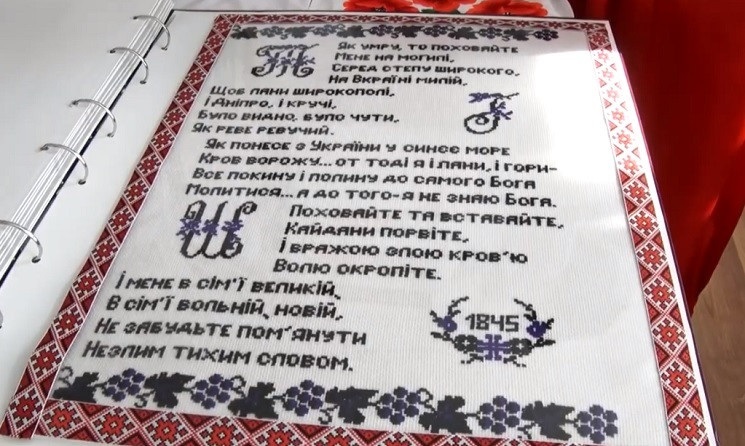 Як умру, то поховайте
Мене на могилі,
Серед степу широкого,
На Вкраїні милій,
Щоб лани широкополі,
І Дніпро, і кручі,
Було видно, було чути,
Як реве ревучий.
Як понесе з України у синєє море
Кров ворожу... от тоді я і лани, і гори–
Все покину і полину до самого Бога
Молитися... а до того–я не знаю Бога.
Поховайте та вставайте,
Кайдани порвіте,
І вражою злою кров'ю
Волю окропіте.
І мене в сім'ї великій,
В сім'ї вольній, новій,
Не забудьте пом'янути
Незлим тихим словом.
1845